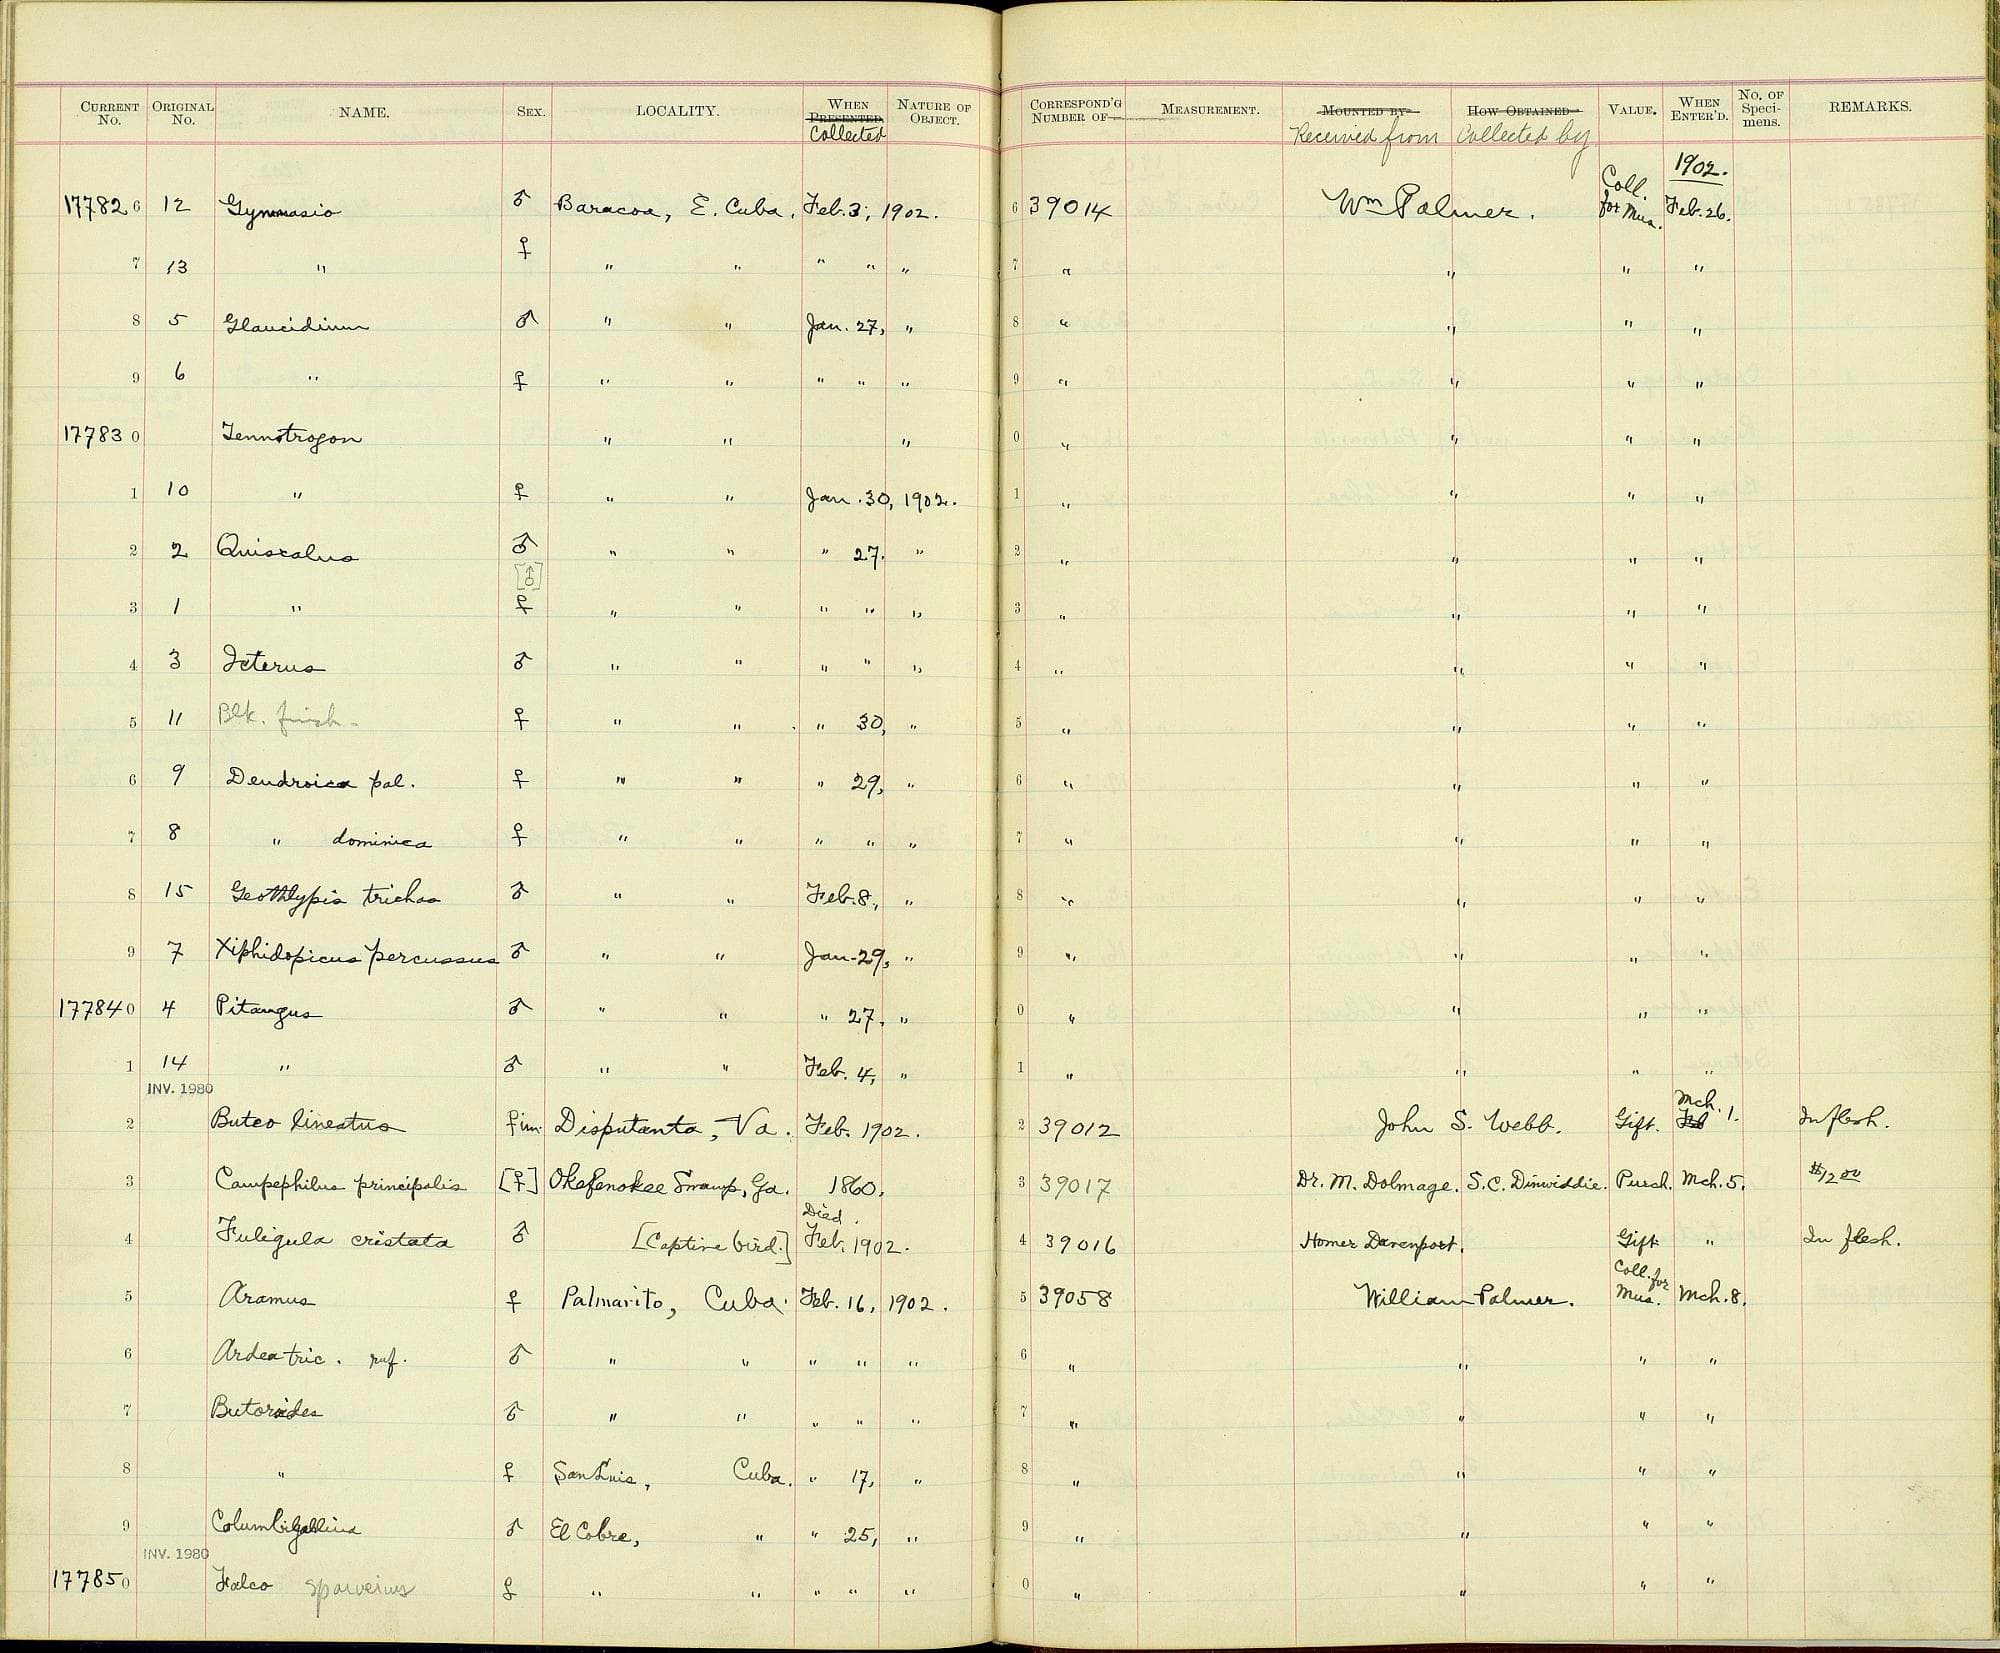 CURRENT No. ORIGINAL No. NAME. SEX. LOCALITY. WHEN PRESENTED Collected NATURE OF OBJECT. CORRESPOND'G NUMBER OF MEASUREMENT. MOUNTED BY Received from HOW OBTAINED Collected by VALUE. WHEN ENTER'D. No. OF Speci-mens. REMARKS.
1902.
177826 12 Gymnasio ♂ Baracoa, E. Cuba. Feb. 3, 1902. 6 39014 Wm Palmer. Coll. for Mus. Feb. 26.
7 13 " ♀ " " " " " 7 " " " "
8 5 Glaucidium ♂ " " Jan. 27, " 8 " " " "
9 6 " ♀ " " " " " 9 " " " "
177830 Temnotrogon " " " 0 " " " "
1 10 " ♀ " " Jan. 30, 1902. 1 " " " "
2 2 Quiscalus ♂ " " " 27. " 2 " " " "
[♂]
3 1 " ♀ " " " " " 3 " " " "
4 3 Icterus ♂ " " " " " 4 " " " "
5 11 Blk. finch ♀ " " " 30, " 5 " " " "
6 9 Dendroica pal. ♀ " " " 29, " 6 " " " "
7 8 " dominica ♀ " " " " " 7 " " " "
8 15 Geothlypis trichas ♂ " " Feb. 8, " 8 " " " "
9 7 Xiphidopicus percussus ♂ " " Jan. 29, " 9 " " " "
177840 4 Pitangus ♂ " " " 27, " 0 " " " "
1 14 " ♂ " " Feb. 4, " 1 " " " "
INV. 1980
2 Buteo lineatus ♀ im. Disputanta, Va. Feb. 1902. 2 39012 John S. Webb. Gift. Feb Mch. 1. In flesh.
3 Campephilus principalis [♀] Okefenokee Swamp, Ga. 1860. 3 39017 Dr. M. Dolmage. S.C. Dinwiddie. Purch. Mch. 5. $12 00
4 Fuligula cristata ♂ [Captive bird.] Died. Feb. 1902. 4 39016 Homer Davenport. Gift " In flesh.
5 Aramus ♀ Palmarito, Cuba. Feb. 16, 1902. 5 39058 William Palmer. Coll. for Mus. Mch. 8.
6 Ardea tric. ruf. ♂ " " " " " 6 " " " "
7 Butorides ♂ " " " " " 7 " " " "
8 " ♀ San Luis, Cuba. " 17, " 8 " " " "
9 Columbigallina ♂ El Cobre, " " 25, " 9 " " " "
INV. 1980
177850 Falco sparverius ♀ " " " " " 0 " " " "